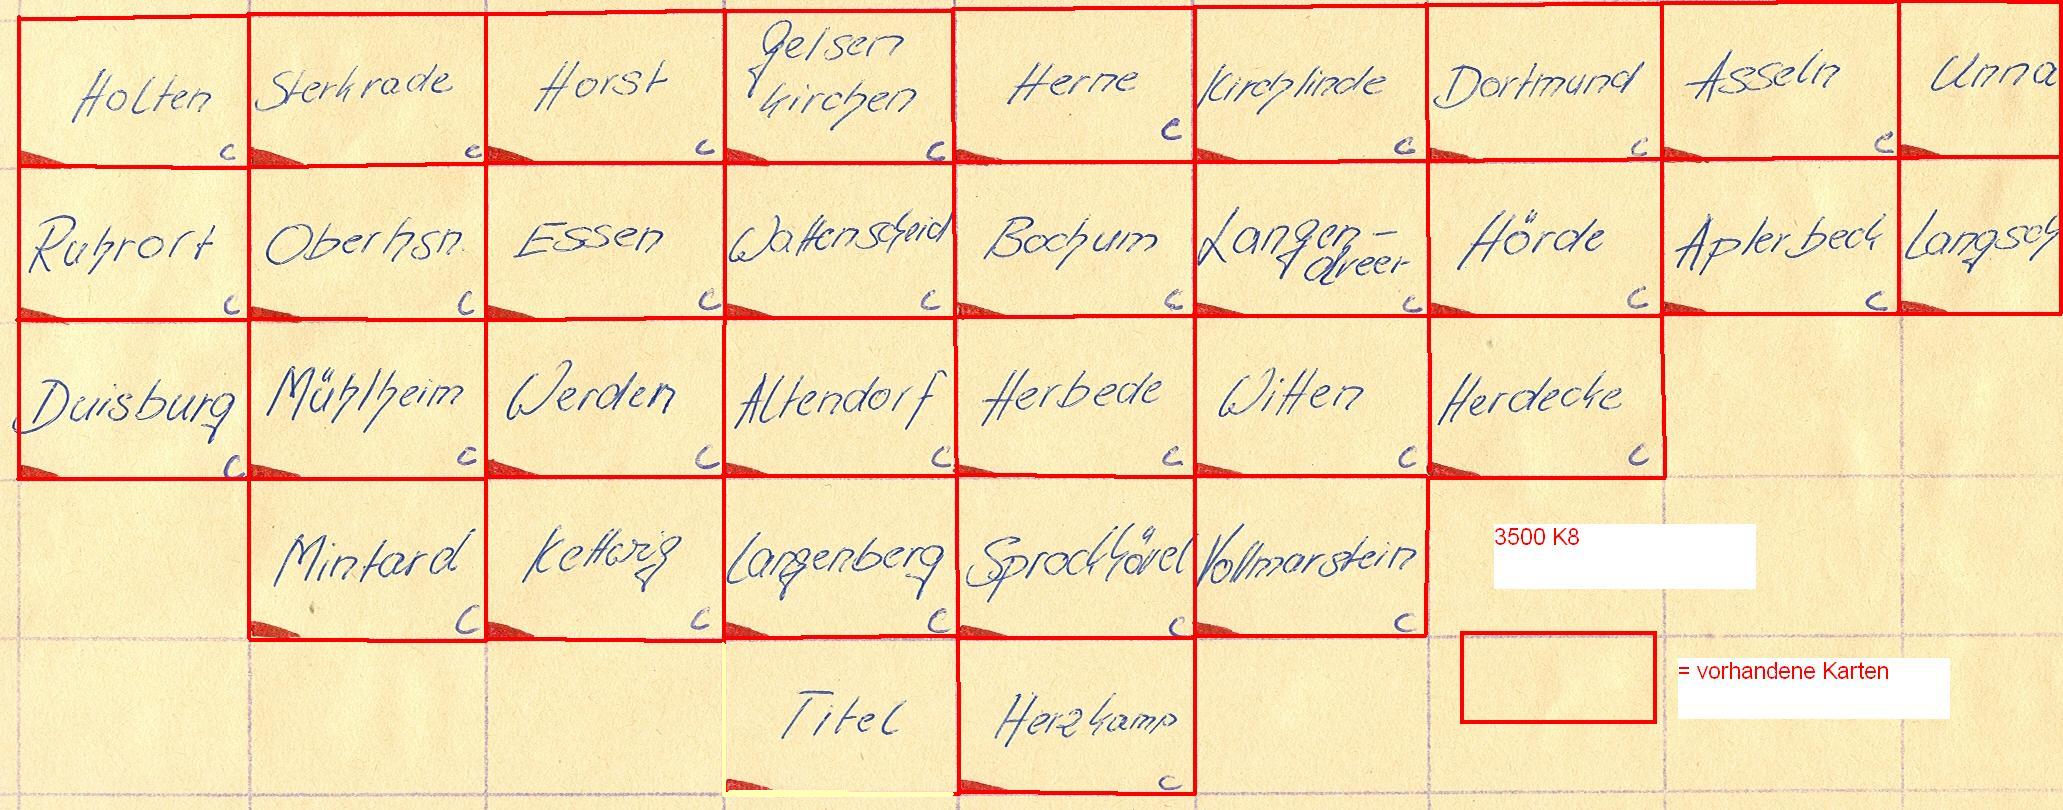 Holten Sterkrade Horst Gelsen Herne Kirchlinde Dortmund Asseln Unna
kirchen
C C C C C C C C
Ruhrort Oberhsn. Essen Wattenscheid Bochum Langen- Hörde Aplerbeck Langsch
dreer
C C C C C C C C
Duisburg Mühlheim Werden Altendorf Herbede Witten Herdecke
C C C C C C C
Mintard Kettwig Langenberg Sprockhövel Vollmarstein
3500 K8
C C C C C
= vorhandene Karten
Titel Herzkamp
C